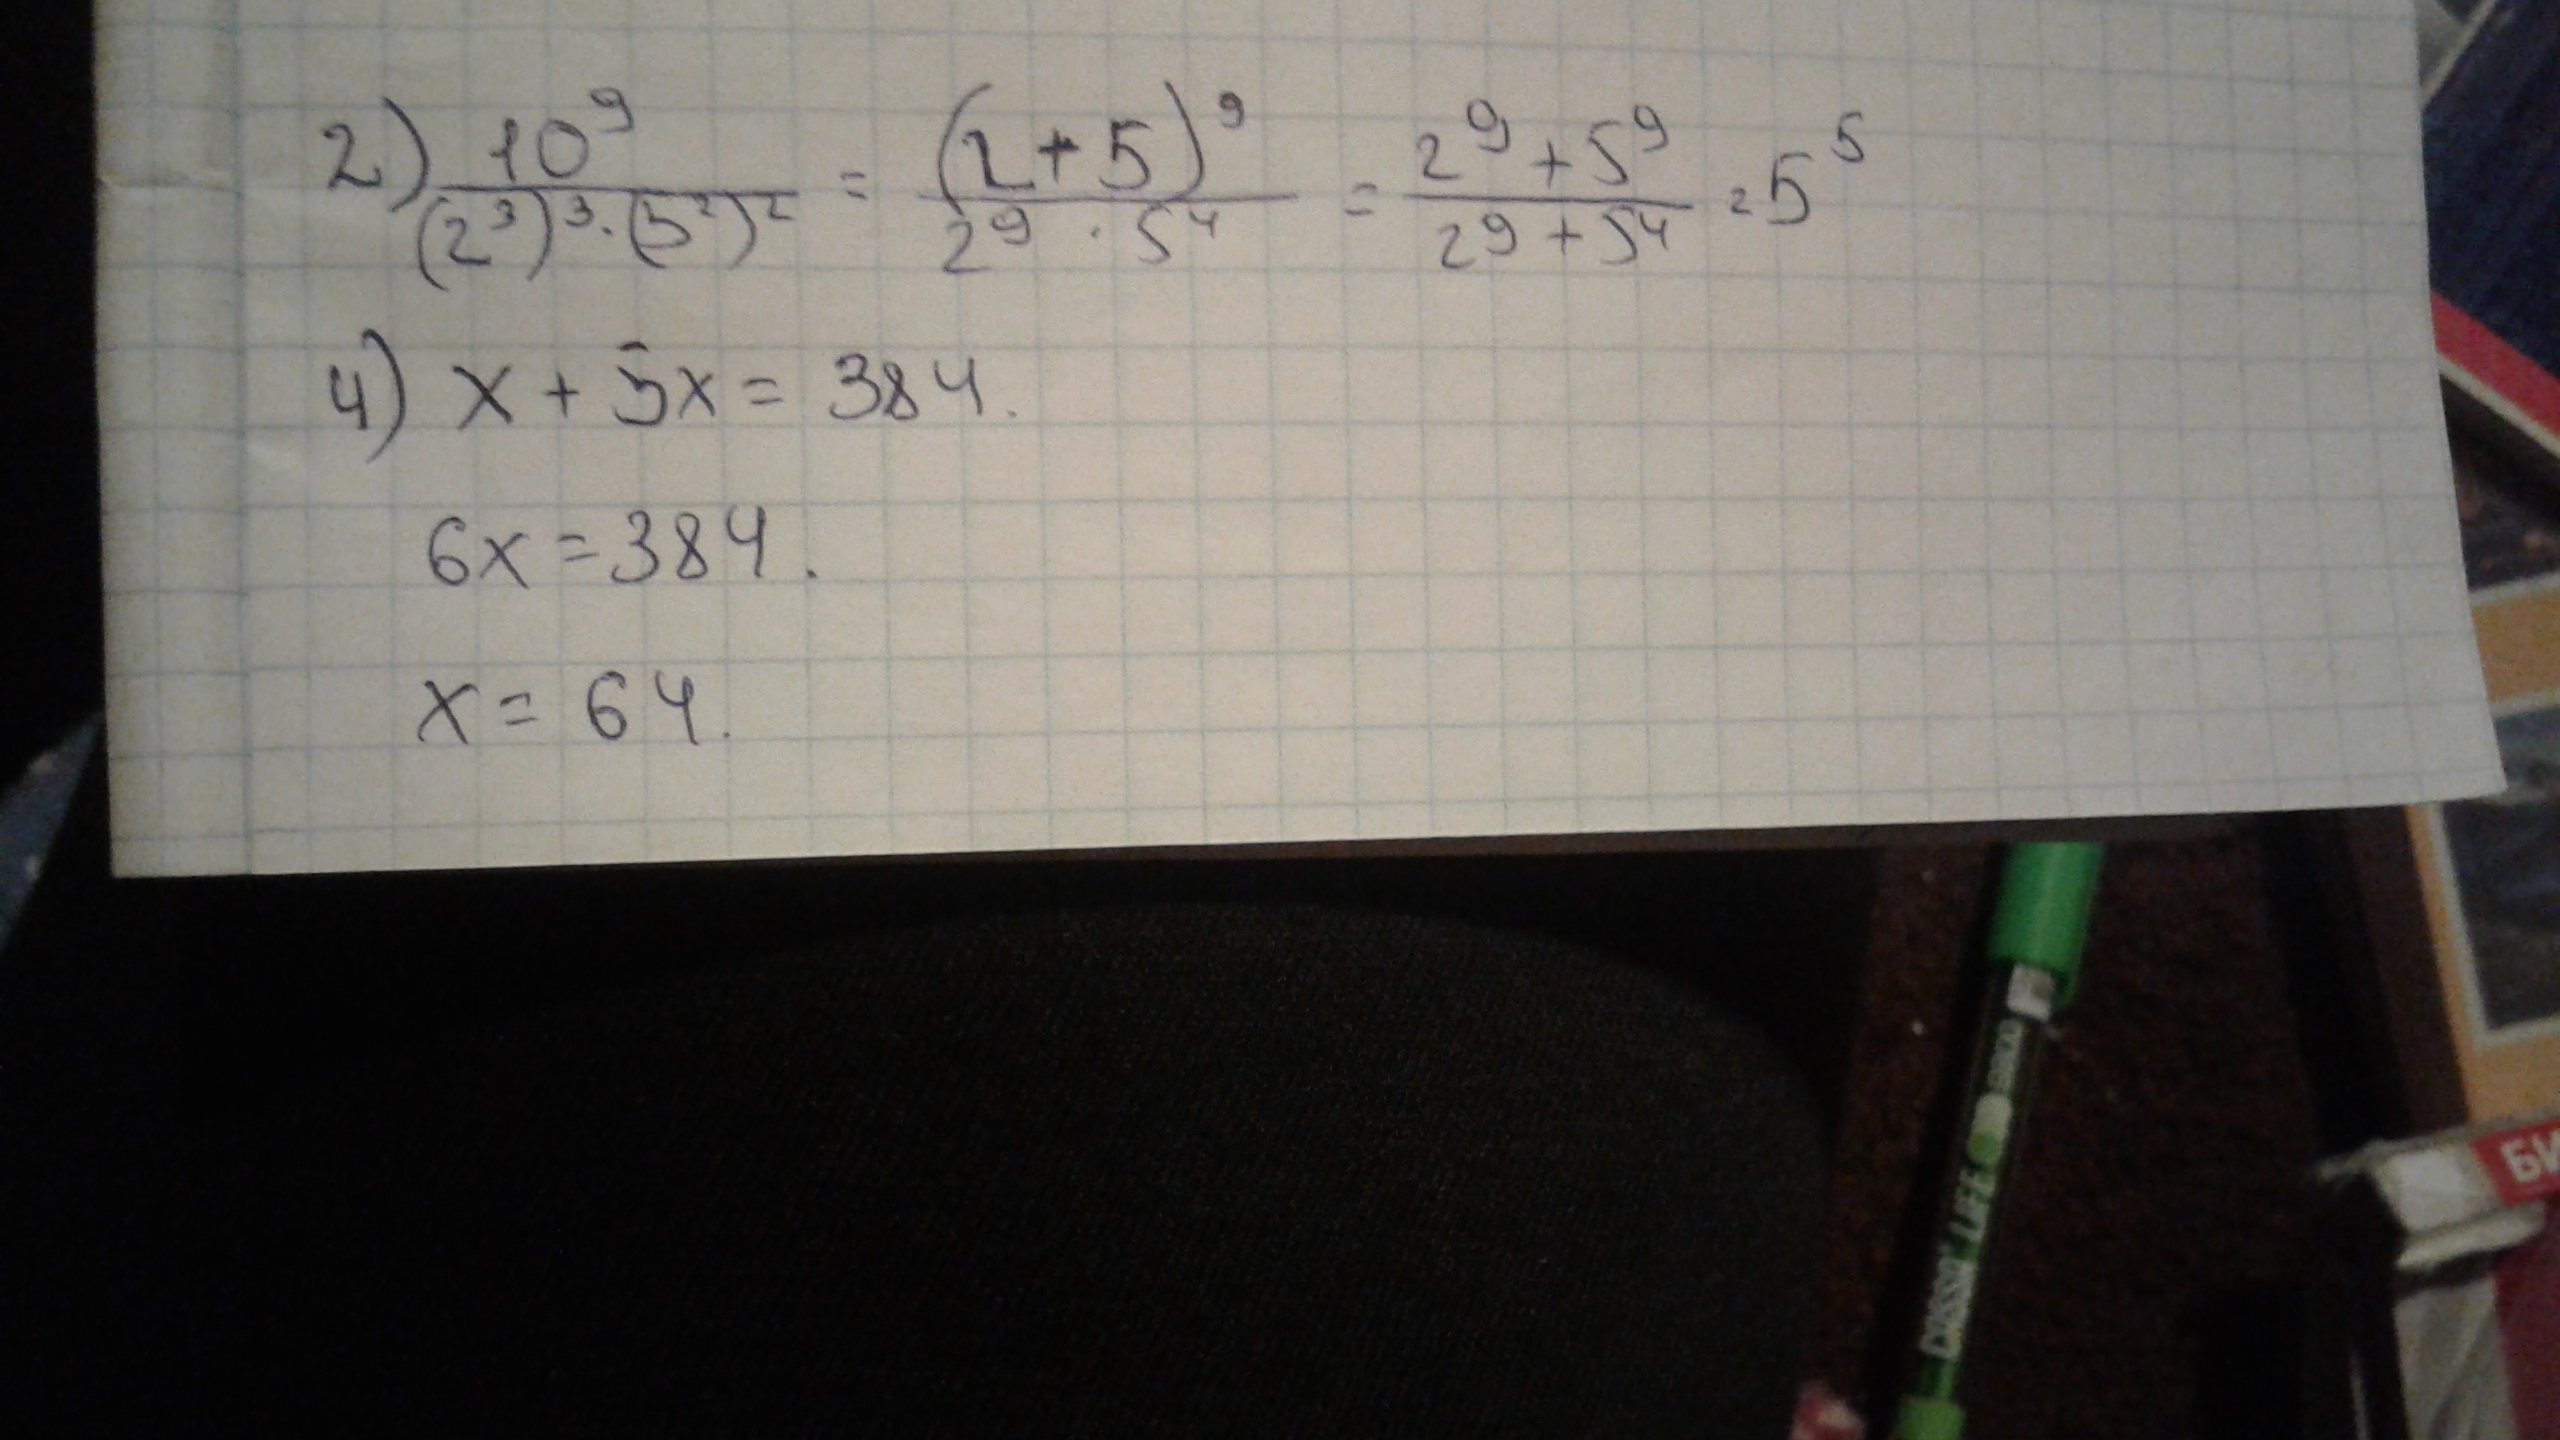 2) 10^9 / (2^3)^3 · (5^2)^2 = (2 + 5)^9 / 2^9 · 5^4 = 2^9 + 5^9 / 2^9 + 5^4 = 5^5
4) x + 5x = 384.
6x = 384.
x = 64.
БИ